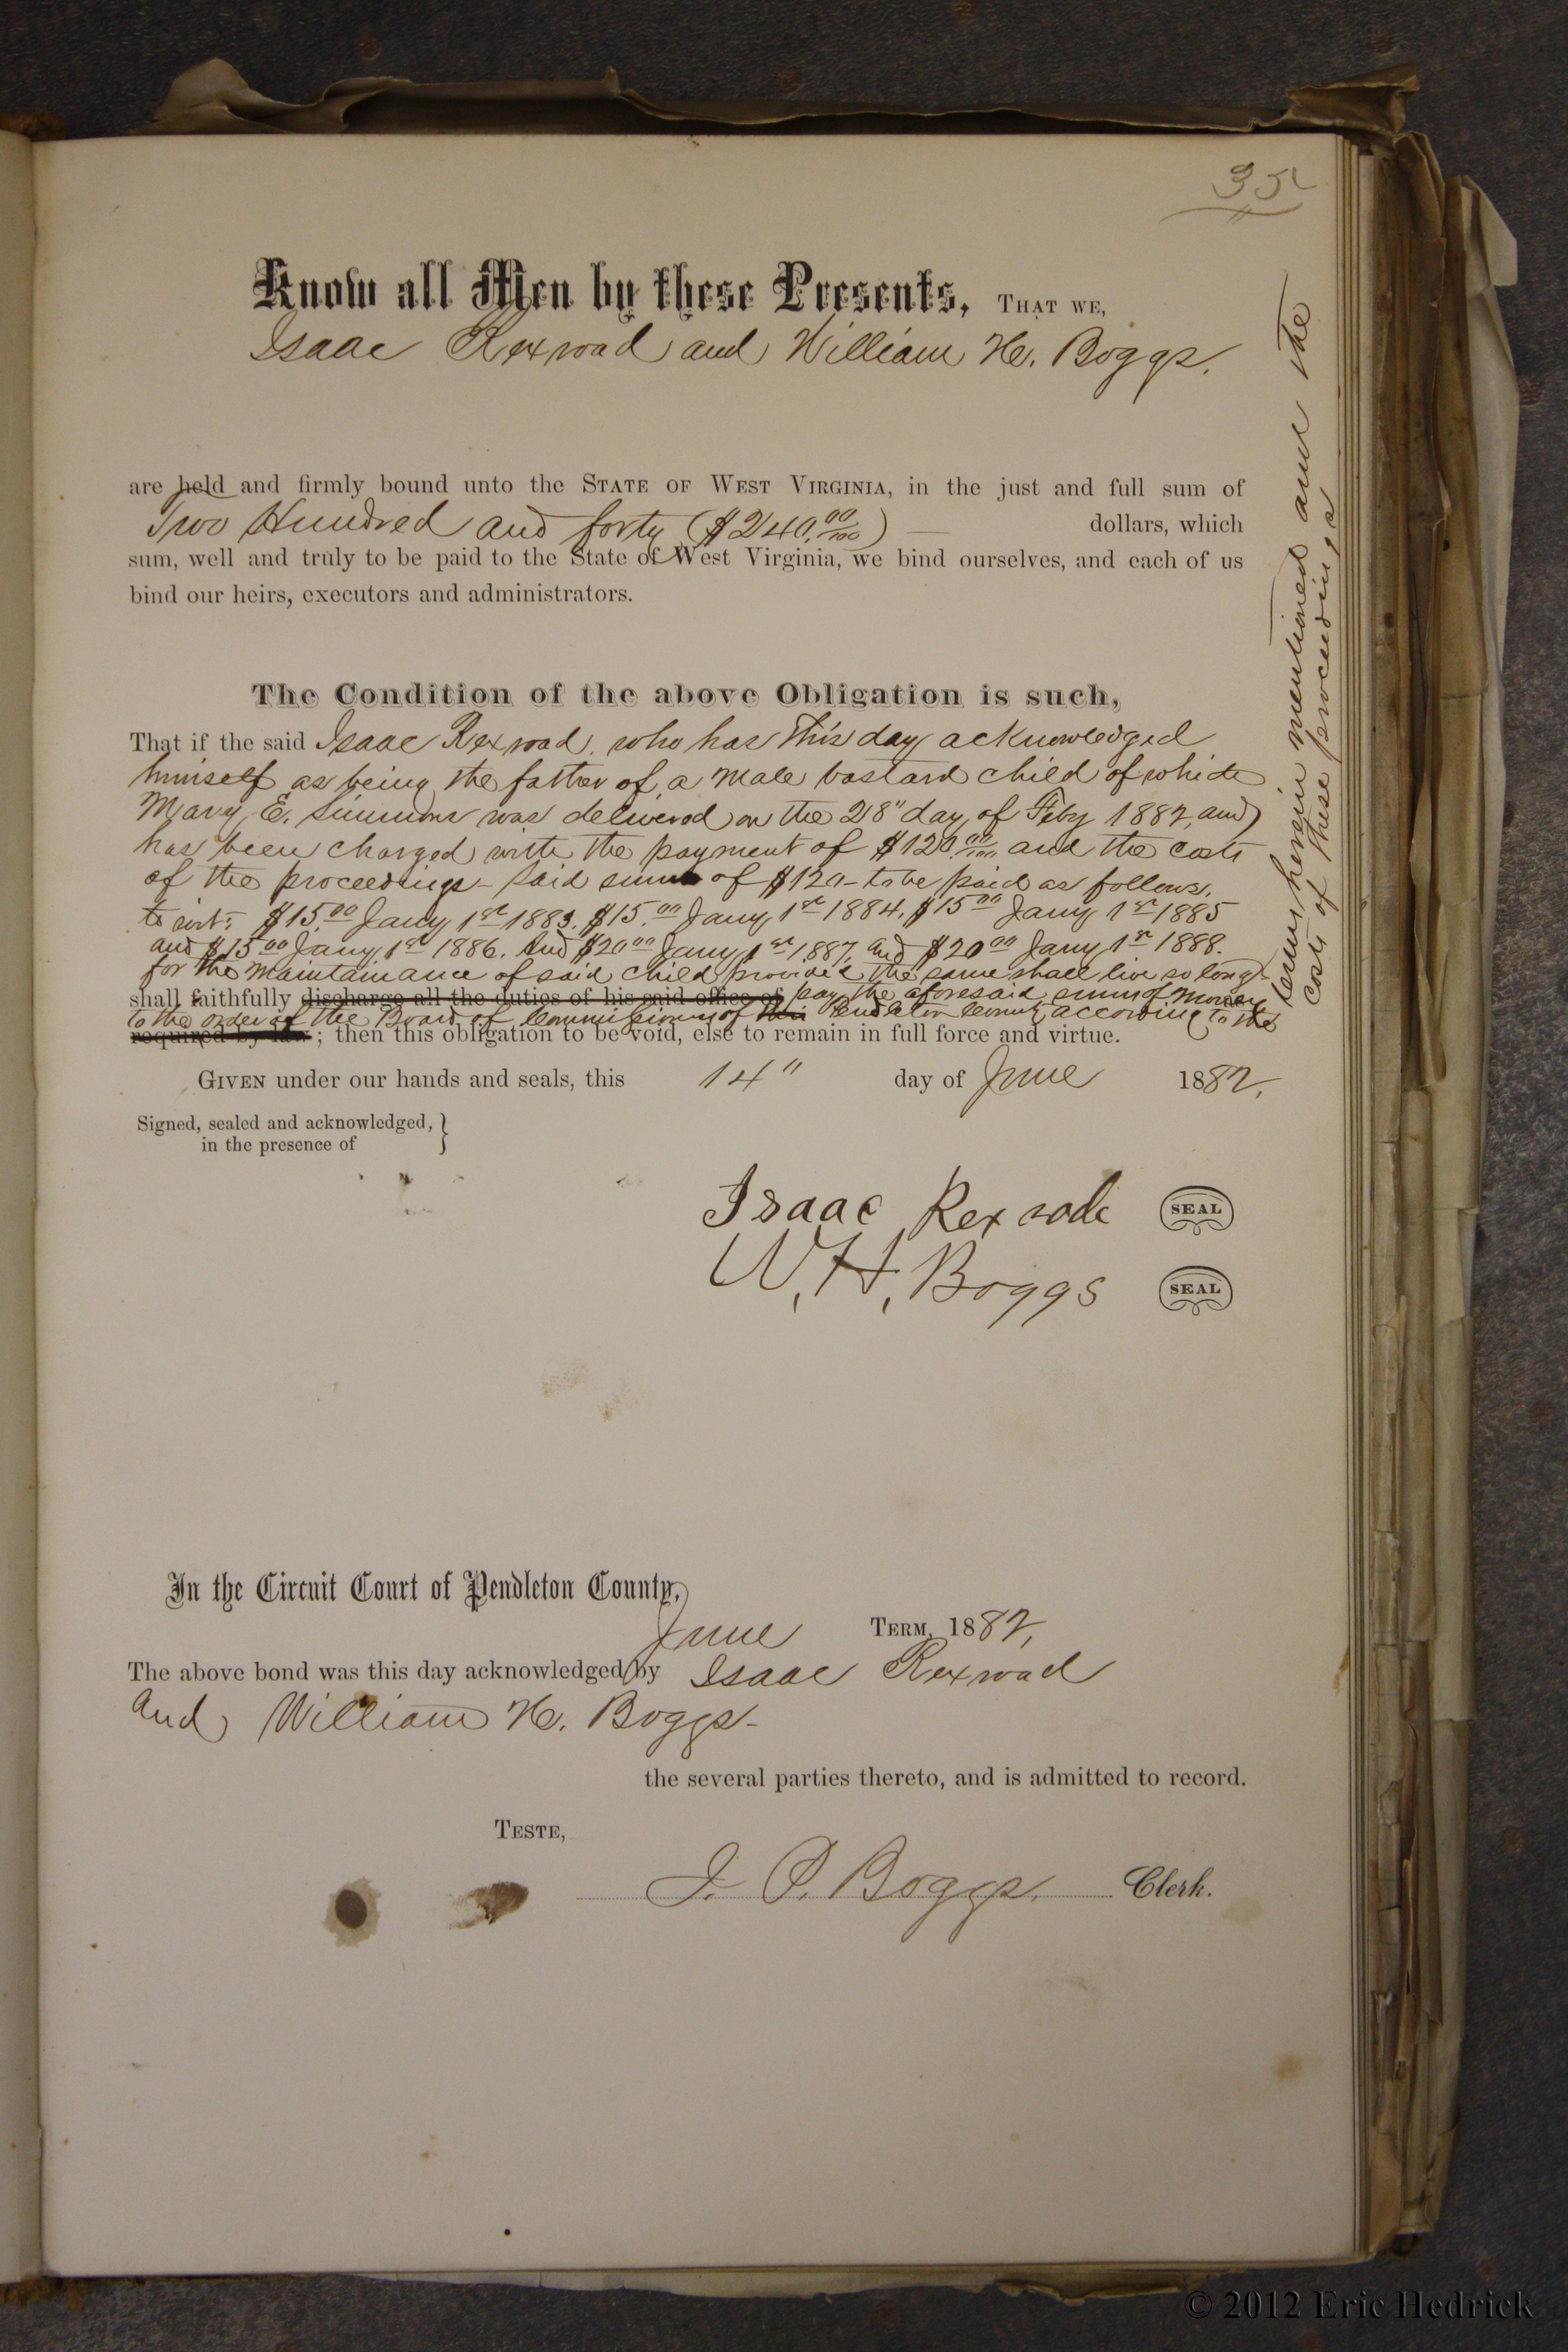 35
Know all Men by these Presents, THAT WE,
Isaac Rexroad and William H. Boggs.
are held and firmly bound unto the STATE OF WEST VIRGINIA, in the just and full sum of
Two Hundred and forty ($240.00/100) — dollars, which
sum, well and truly to be paid to the State of West Virginia, we bind ourselves, and each of us
bind our heirs, executors and administrators.
The Condition of the above Obligation is such,
That if the said Isaac Rexroad, who has this day acknowledged
himself as being the father of a male bastard child of which
Mary E. Simmons was delivered on the 28" day of Feby 1882, and
has been charged with the payment of $120.00/100 and the costs
of the proceedings - Said sum of $120 - to be paid as follows.
to wit: $15.00 Jany 1st 1883. $15.00 Jany 1st 1884. $15.00 Jany 1st 1885
and $15.00 Jany 1st 1886. And $20.00 Jany 1st 1887. and $20.00 Jany 1st 1888.
for the maintainance of said child provided the same shall live so long
shall faithfully discharge all the duties of his said office of pay the aforesaid sum of money
to the order of the Board of Commissioners of this Pendleton County according to the
required by law; then this obligation to be void, else to remain in full force and virtue.
terms herein mentioned and the
costs of these proceedings
GIVEN under our hands and seals, this 14" day of June 1882.
Signed, sealed and acknowledged, }
in the presence of
Isaac Rexrode SEAL
W. H. Boggs SEAL
In the Circuit Court of Pendleton County,
June TERM, 1882.
The above bond was this day acknowledged by Isaac Rexroad
and William H. Boggs-
the several parties thereto, and is admitted to record.
TESTE,
J. P. Boggs. Clerk.
© 2012 Eric Hedrick